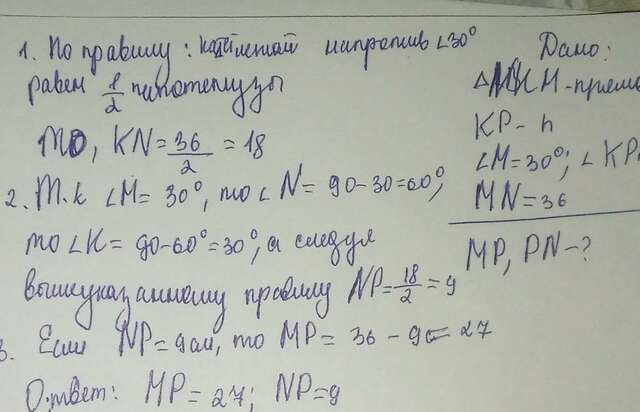 1. По правилу: катет лежащий напротив ∠30°
равен 1/2 гипотенузы
То, KN = 36/2 = 18
2. Т.к ∠M = 30°, то ∠N = 90-30=60°,
то ∠K = 90-60°=30°, а следуя
вышеуказанному правилу NP = 18/2 = 9
3. Если NP = 9см, то MP = 36 - 9 = 27
Ответ: MP = 27; NP=9
Дано:
KP - h
∠M=30°; ∠KP
MN = 36
MP, PN - ?